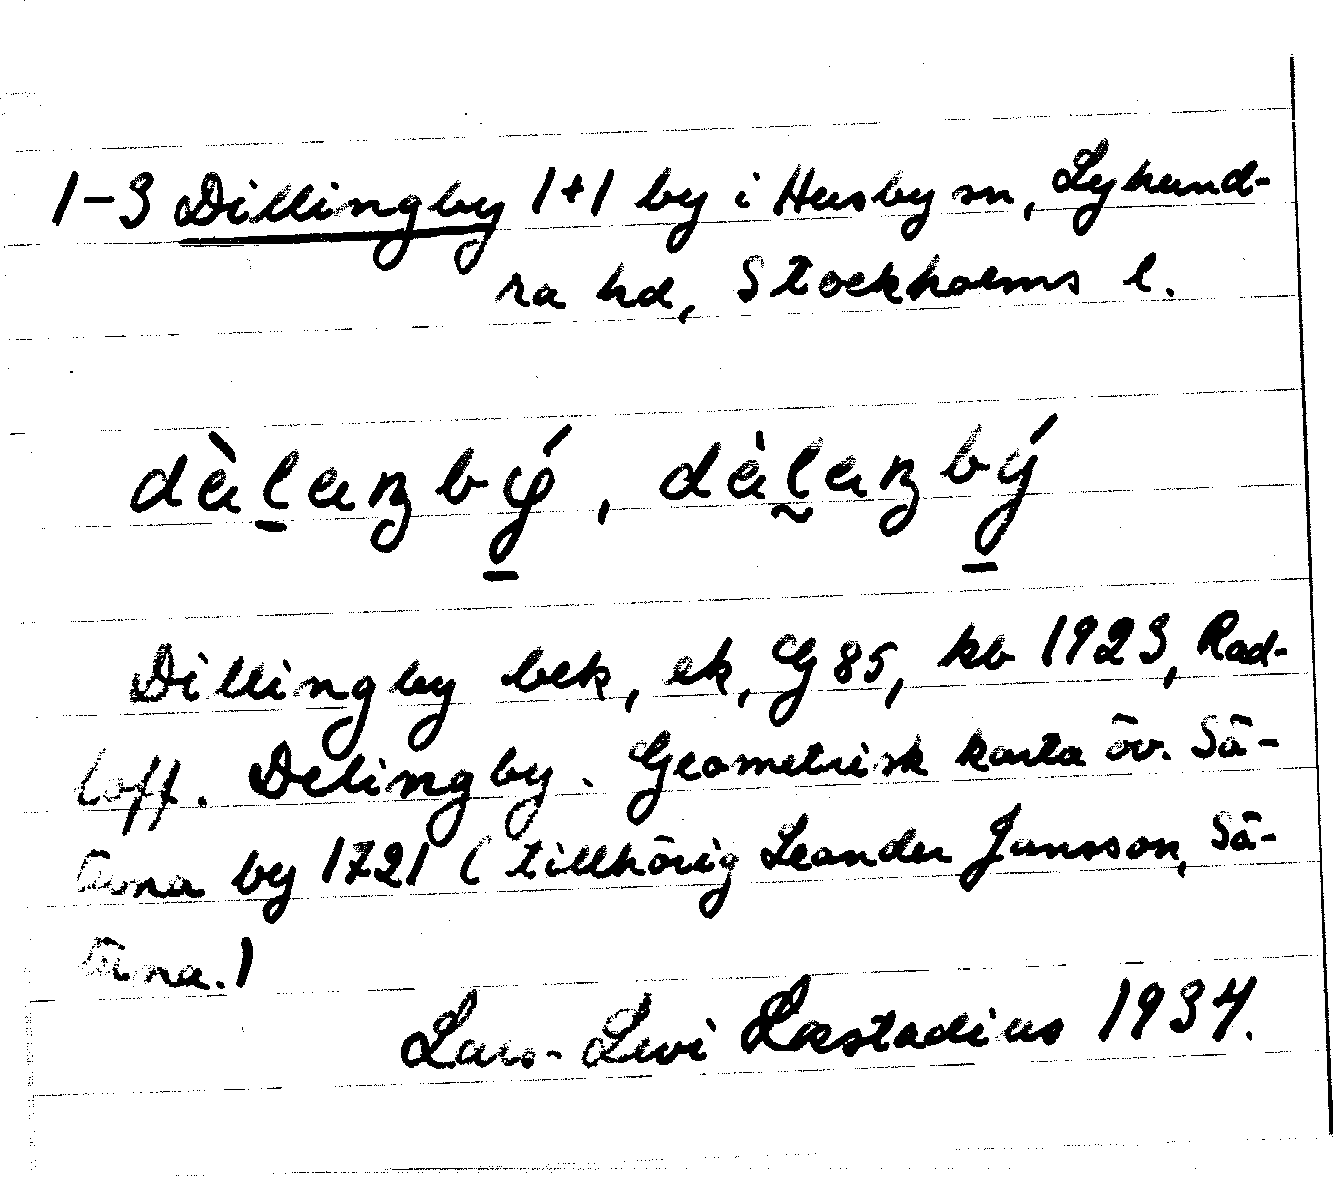 1-3 Dillingby 1+1 by i Husby sn, Lyhund-
ra hd, Stockholms l.
Dillingby bek, ek, G 85, kb 1923, Rad-
loff. Delingby. Geometrisk karta öv. Sä-
terna by 1721 (tillhörig Leander Jansson, Sä-
terna.)
Lars-Levi Læstadius 1934.